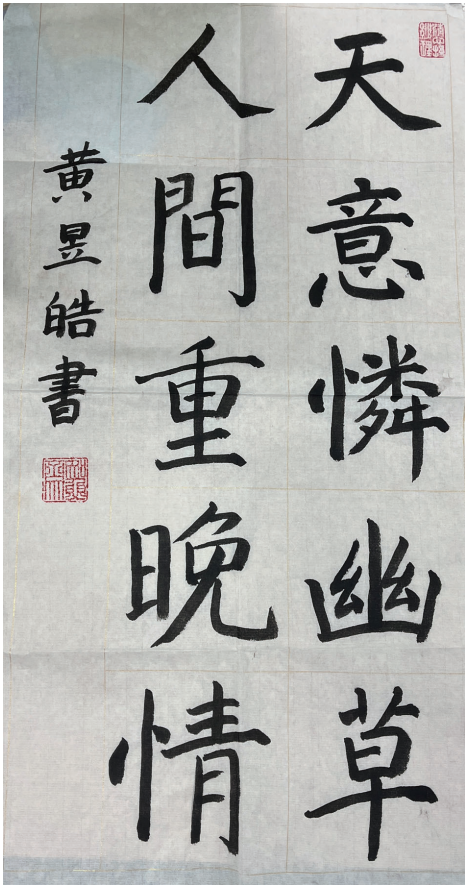 天意憐幽草
人間重晚情
黄昱皓書